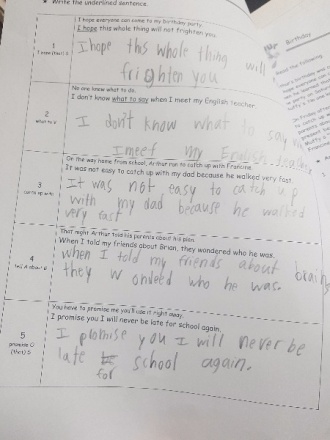 ★ Write the underlined sentence.
1
I hope (that) S
I hope everyone can come to my birthday party.
I hope this whole thing will not frighten you.
I hope this whole thing will
frighten you
2
what to V
No one knew what to do.
I don't know what to say when I meet my English teacher.
I don't know what to say
I meet my English
3
On the way home from school, Arthur ran to catch up with Francine.
It was not easy to catch up with my dad because he walked very fast.
It was not easy to catch up
with my dad because he walked
very fast
4
tell A about B
That night Arthur told his parents about his plan.
When I told my friends about Brian, they wondered who he was.
when I told my friends about brain
they w ondeed who he was.
5
promise O
(that) S
You have to promise me you'll use it right away.
I promise you I will never be late for school again.
I promise you I will never be
late for school again.
Birthday